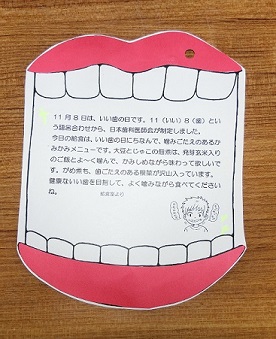 11月8日は、いい歯の日です。11（いい）8（歯）とい
う語呂合わせから、日本歯科医師会が制定しました。
今日の給食は、いい歯の日にちなんで、噛みごたえのあるか
みかみメニューです。大豆とじゃこの甘煮は、発芽玄米入り
のご飯とよ～く噛んで、かみしめながら味わって欲しいで
す。がめ煮も、歯ごたえのある根菜が沢山入っています。
健康ないい歯を目指して、よく噛みながら食べてください
ね。
給食室より